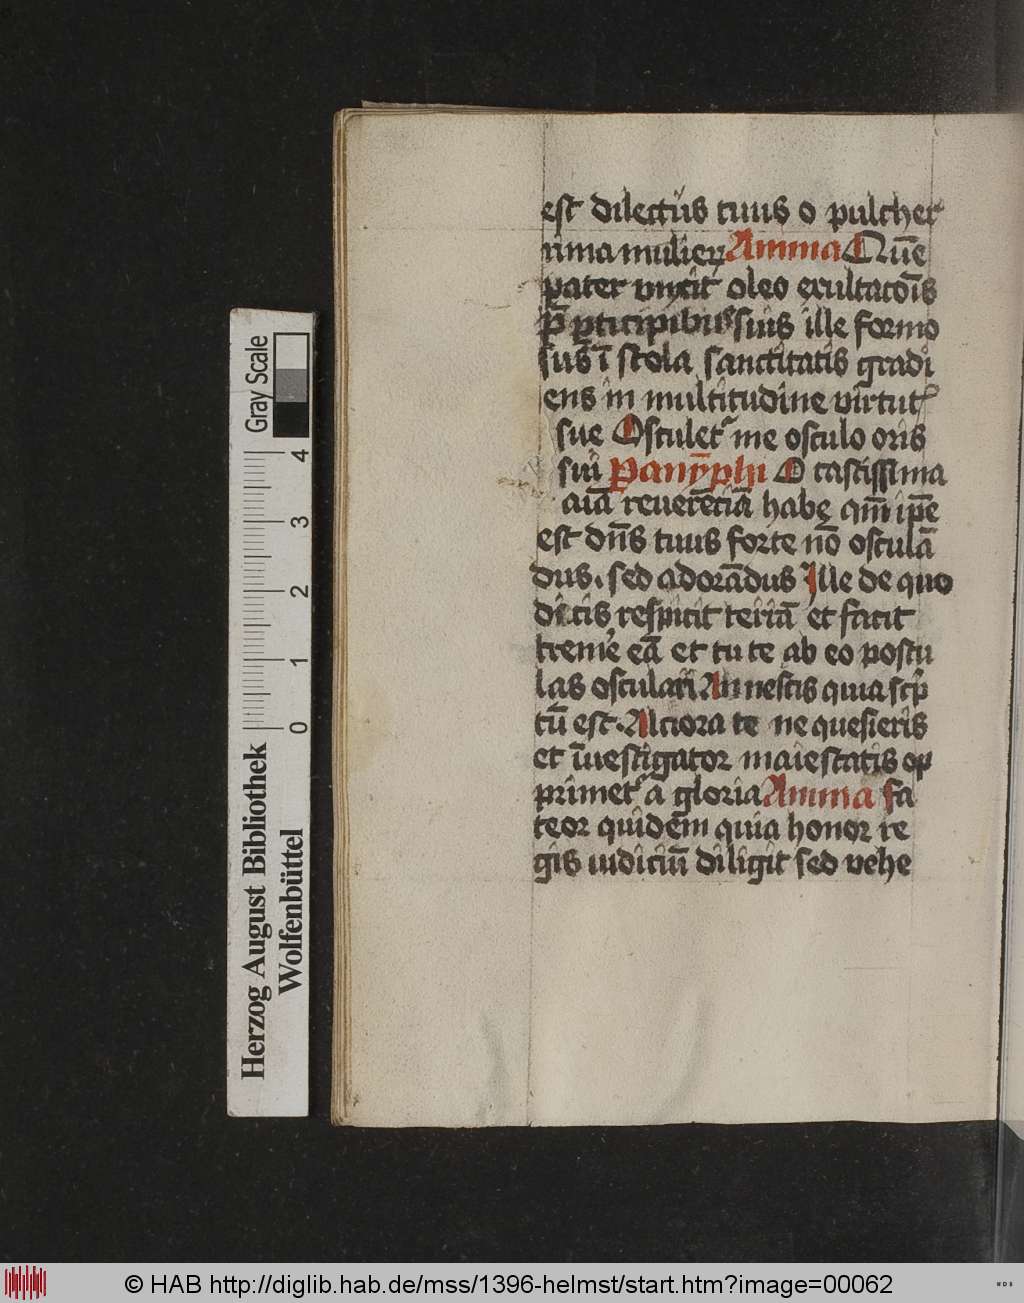 est dilectus tuus o pulcher
rima mulier Amma Quē
pater vnxit oleo exultacōīs
p̄ ꝑticipibus suis ille formo
sus ī stola sanctitatis gradi
ens in multitudine virtut᷒
sue Osculet᷒ me osculo oris
sui Panȳphi O castissima
aīā reuerēciā habe qm̄ ip̄e
est dn̄s tuus forte nō osculā
dus. sed adorādus Ille de quo
dicis respicit terrā et facit
treme᷒ eā et tu te ab eo postu
las osculari An nescis quia scͥp
tū est. Alciora te ne quesieris
et īuestigator maiestatis op
primet᷒ a gloria Amma Fa
teor quidem quia honor re
gis iudiciū diligit sed vehe
Gray Scale
4
3
2
1
0
Herzog August Bibliothek
Wolfenbüttel
© HAB http://diglib.hab.de/mss/1396-helmst/start.htm?image=00062